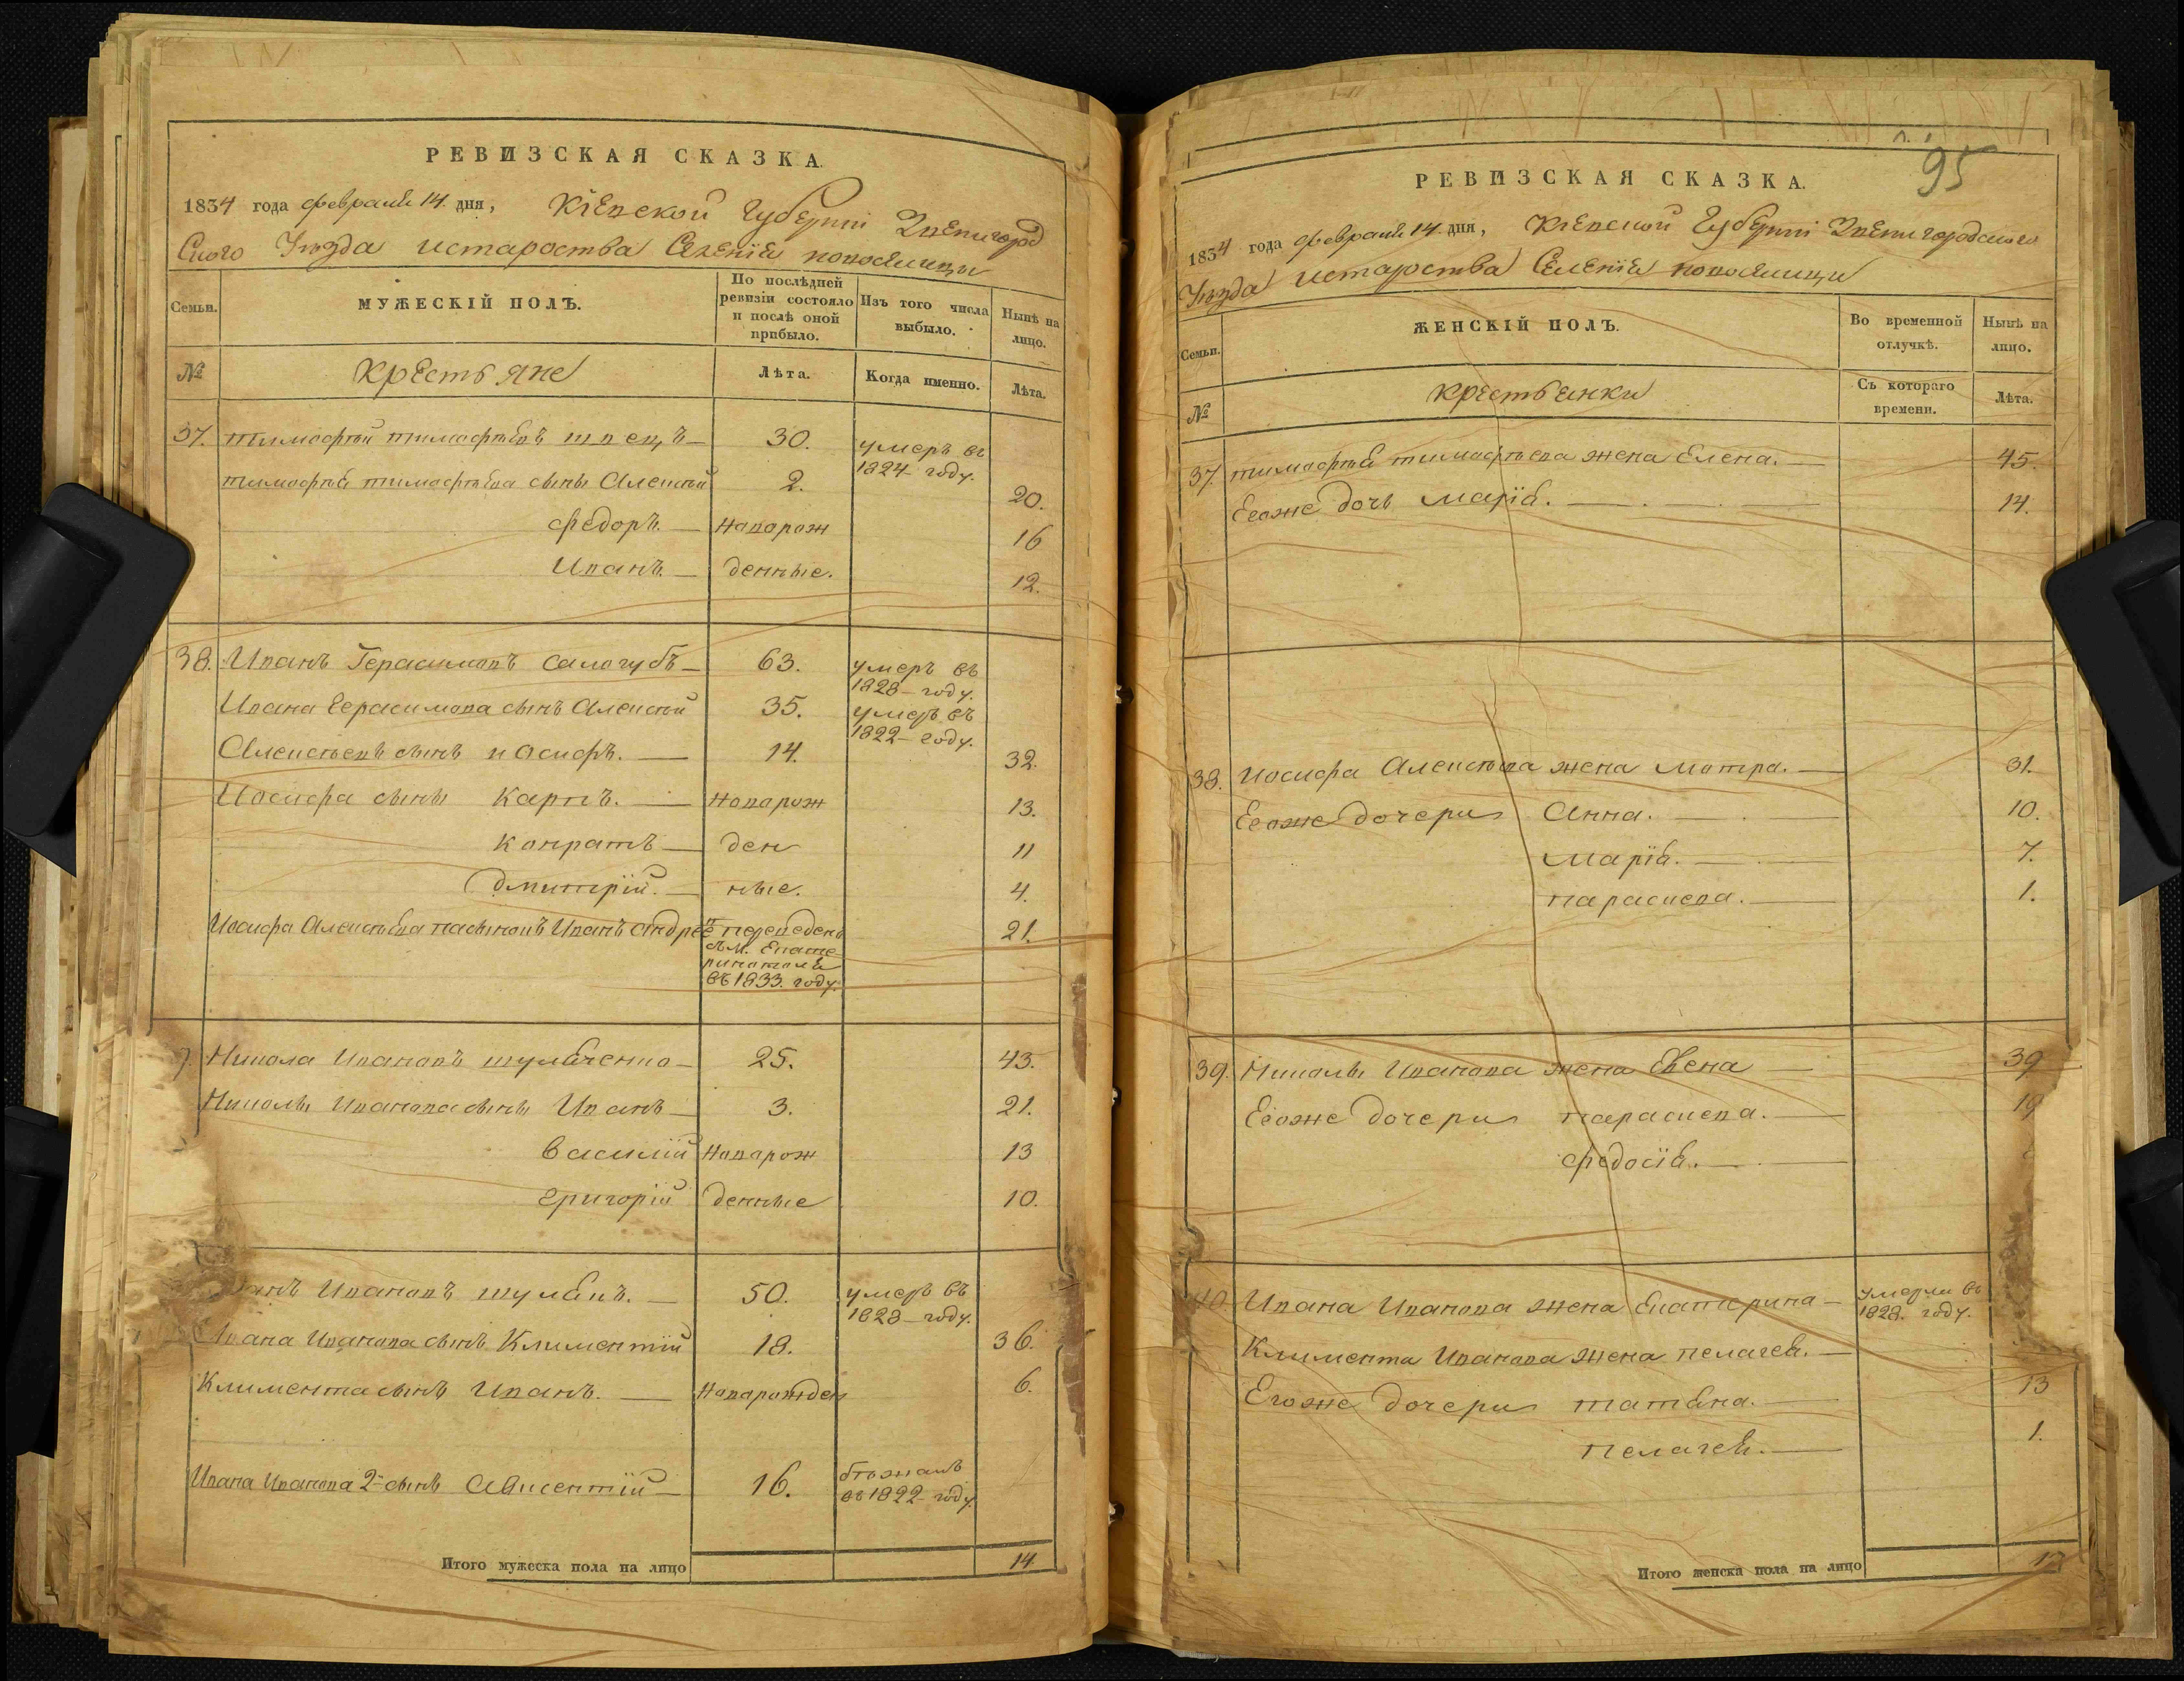 РЕВИЗСКАЯ СКАЗКА.
1834 года февраля 14. дня, Кіевской Губерніи Звенигород
скаго Уѣзда и староства Селенія новоселицы
Семьи. МУЖЕСКІЙ ПОЛЪ. По послѣдней ревизіи состояло и послѣ оной прибыло. Изъ того числа выбыло. Нынѣ на лицо.
№ Крестьяне Лѣта. Когда именно. Лѣта.
37. тимофѣй тимофѣевъ швецъ 30. умеръ въ
1824 году.
тимофѣя тимофѣева сынъ Алексѣй 2. 20.
федоръ. новорож 16
Иванъ. денные. 12.
38. Иванъ Герасимовъ салогубъ 63. умеръ въ
1828 году.
Ивана Герасимова сынъ Алексѣй 35. умеръ въ
1822 году.
Алексѣевъ сынъ иосифъ. 14. 32.
Иосифа сыны карпъ. новорож 13.
конратъ ден 11
дмитрій. ные. 4.
Иосифа Алексѣева пасынокъ Иванъ андре переведенъ 21.
въ 1833. году.
Никола Ивановъ шулбченко 25. 43.
Николы Иванова сыны Иванъ 3. 21.
василій новорож 13
григорій денные 10.
Ивановъ шулбикъ. 50. умеръ въ
1828 году.
Ивана Иванова сынъ Климентій 18. 36.
Климента сынъ Иванъ. новорожден 6.
Ивана Иванова 2й сынъ 16. бѣжалъ
въ 1822 году.
Итого мужеска пола на лицо 14
95
РЕВИЗСКАЯ СКАЗКА.
1834 года февраля 14 дня, Кіевской Губерніи Звенигородскаго
Уѣзда и староства Селенія новоселицы
Семьи. ЖЕНСКІЙ ПОЛЪ. Во временной отлучкѣ. Нынѣ на лицо.
№ крестьянки Съ котораго времени. Лѣта.
37 тимофѣя тимофѣева жена Елена. 45.
Егоже дочь марія. 14.
38. иосифа Алексѣева жена мотра. 31.
Егоже дочери Анна. 10.
марія. 7.
параскева. 1.
39. Николы Иванова жена 39
Егоже дочери параскева. 19
федосія.
40 Ивана Иванова жена Екатерина умерли въ
1828. году.
Климента Иванова жена пелагея.
Егоже дочери татіяна. 13
пелагея. 1.
Итого женска пола на лицо